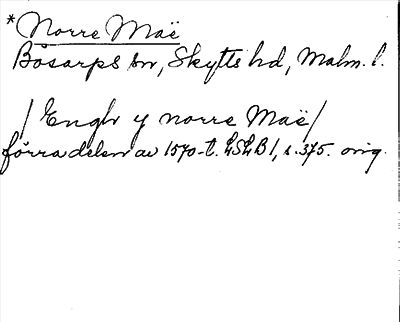 *Norre Maë
Bösarps sn, Skytts hd, Malm. l.
/ Enghr y norre Maë/
förra delen av 1570-t. LSLB1, s. 375. orig.